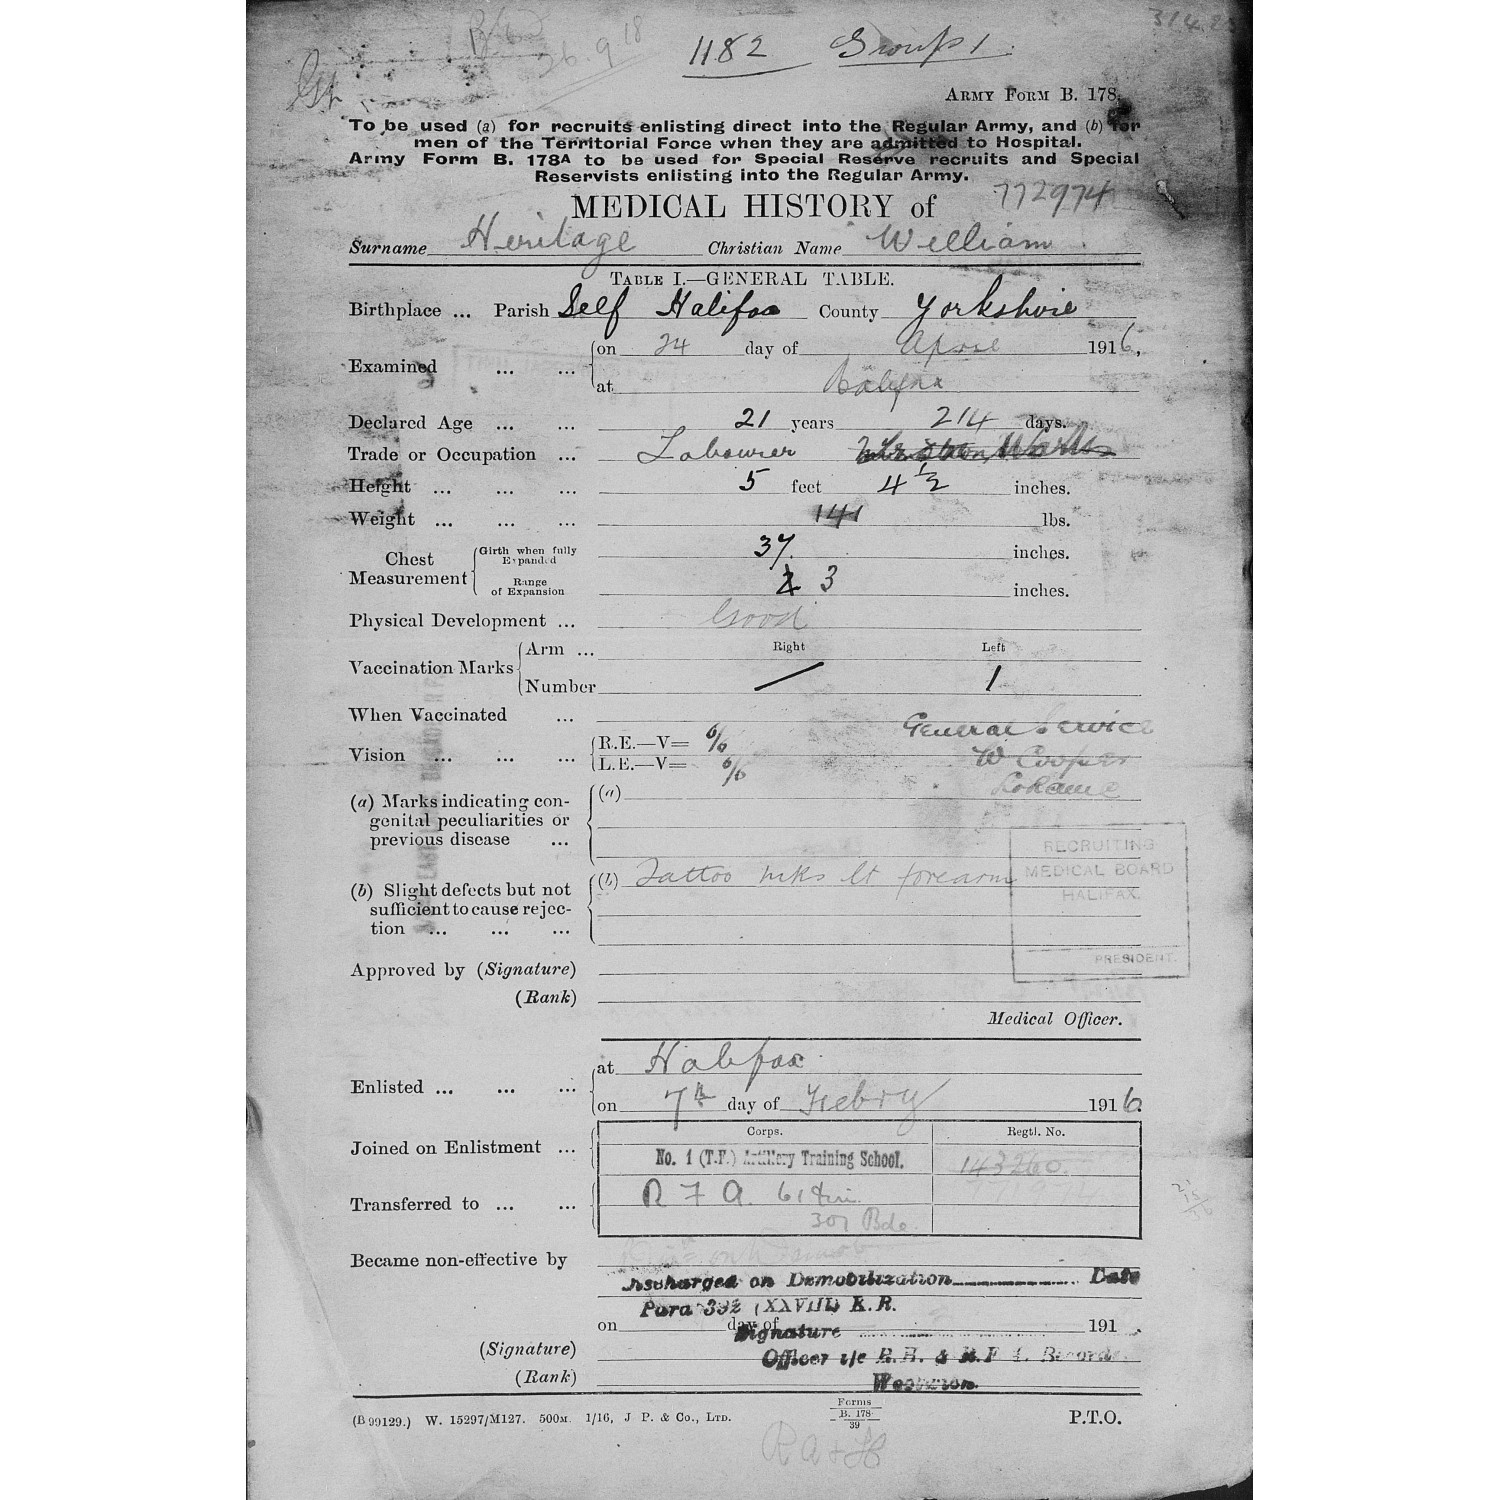 314.2
26.9.18
1182 Group 1.
ARMY FORM B. 178.
To be used (a) for recruits enlisting direct into the Regular Army, and (b) for
men of the Territorial Force when they are admitted to Hospital.
Army Form B. 178A to be used for Special Reserve recruits and Special
Reservists enlisting into the Regular Army.
772974
MEDICAL HISTORY of
Surname Heritage Christian Name William
TABLE I.—GENERAL TABLE.
Birthplace ... Parish Self Halifax County Yorkshire
Examined ... ... on 24 day of April 1916,
at Halifax
Declared Age ... ... 21 years 214 days.
Trade or Occupation ... Labourer Works
Height ... ... ... 5 feet 4½ inches.
Weight ... ... ... 141 lbs.
Chest Measurement Girth when fully Expanded 37 inches.
Range of Expansion 3 inches.
Physical Development ... Good
Vaccination Marks Arm ... Right Left
Number / 1
When Vaccinated ...
General Service
Vision ... ... ... R.E.—V= 6/6
L.E.—V= 6/6
W Cooper
(a) Marks indicating con-
genital peculiarities or
previous disease ... (a)
RECRUITING
MEDICAL BOARD
HALIFAX.
PRESIDENT.
(b) Slight defects but not
sufficient to cause rejec-
tion ... ... ... (b) Tattoo mks lt forearm
Approved by (Signature)
(Rank)
Medical Officer.
Enlisted ... ... ... at Halifax
on 7th day of Febry 1916.
Corps. Regtl. No.
Joined on Enlistment ... No. 1 (T.F.) Artillery Training School. 143260.
Transferred to ... ... R F A. 61 Din.
307 Bde.
Became non-effective by
Discharged on Demobilization Date
Para 392 (XXVIII) K.R.
on day of 191
Signature
(Signature)
Officer i/c R.H. & R.F.A. Records
(Rank)
(B 99129.) W. 15297/M127. 500M. 1/16, J P. & Co., LTD.
Forms
B. 178
39
P.T.O.